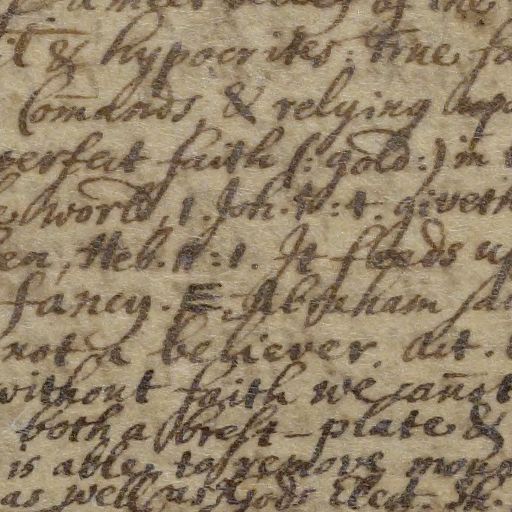 a meer of the
it & hypocrites: true fa
Com̄ands, & relying upo
perfect faith (: gold :) in
world, 1. Joh. 5: 4. giveth
Heb. 11: 1. It floods up
fancy. E. Abraham
not a believer. act.
without faith we can̄ot
both a brest-plate &
is able to remove moun
as well as Gods Elect. Th.